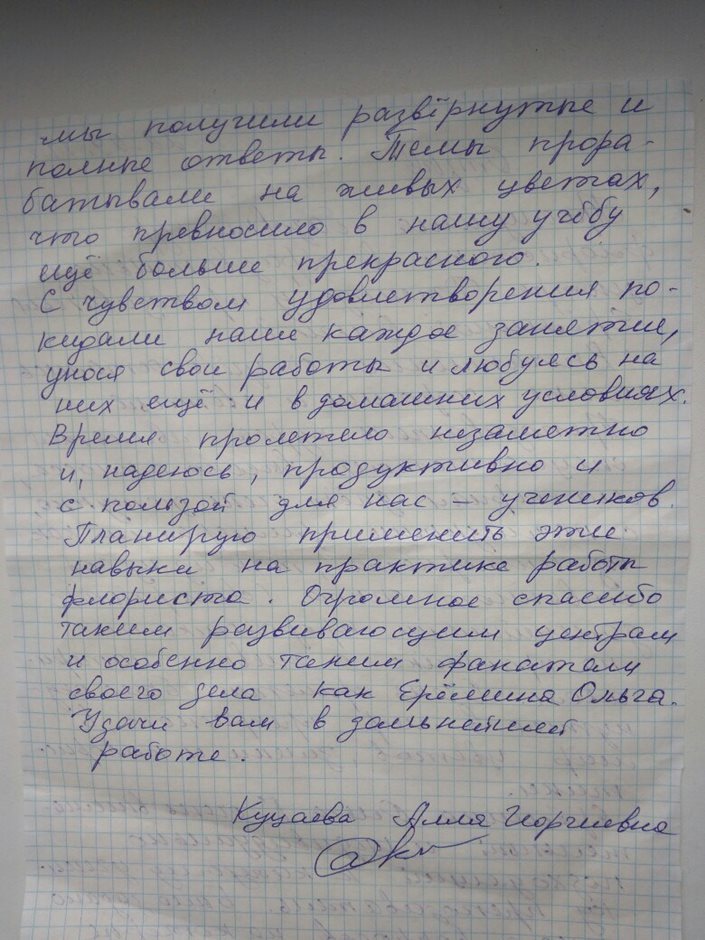 мы получили развёрнутые и
полные ответы. Темы прора-
батывали на живых цветах,
что превносило в нашу учёбу
ещё больше прекрасного.
С чувством удовлетворения по-
кидали наше каждое занятие,
унося свои работы и любуясь на
них ещё и в домашних условиях.
Время пролетело незаметно
и, надеюсь, продуктивно и
с пользой для нас - учеников.
Планирую применить эти
навыки на практике работы
флориста. Огромное спасибо
таким развивающим центрам
и особенно таким фанатам
своего дела как Ерёмина Ольга.
Удачи Вам в дальнейшей
работе.
Куцаева Алла Георгиевна